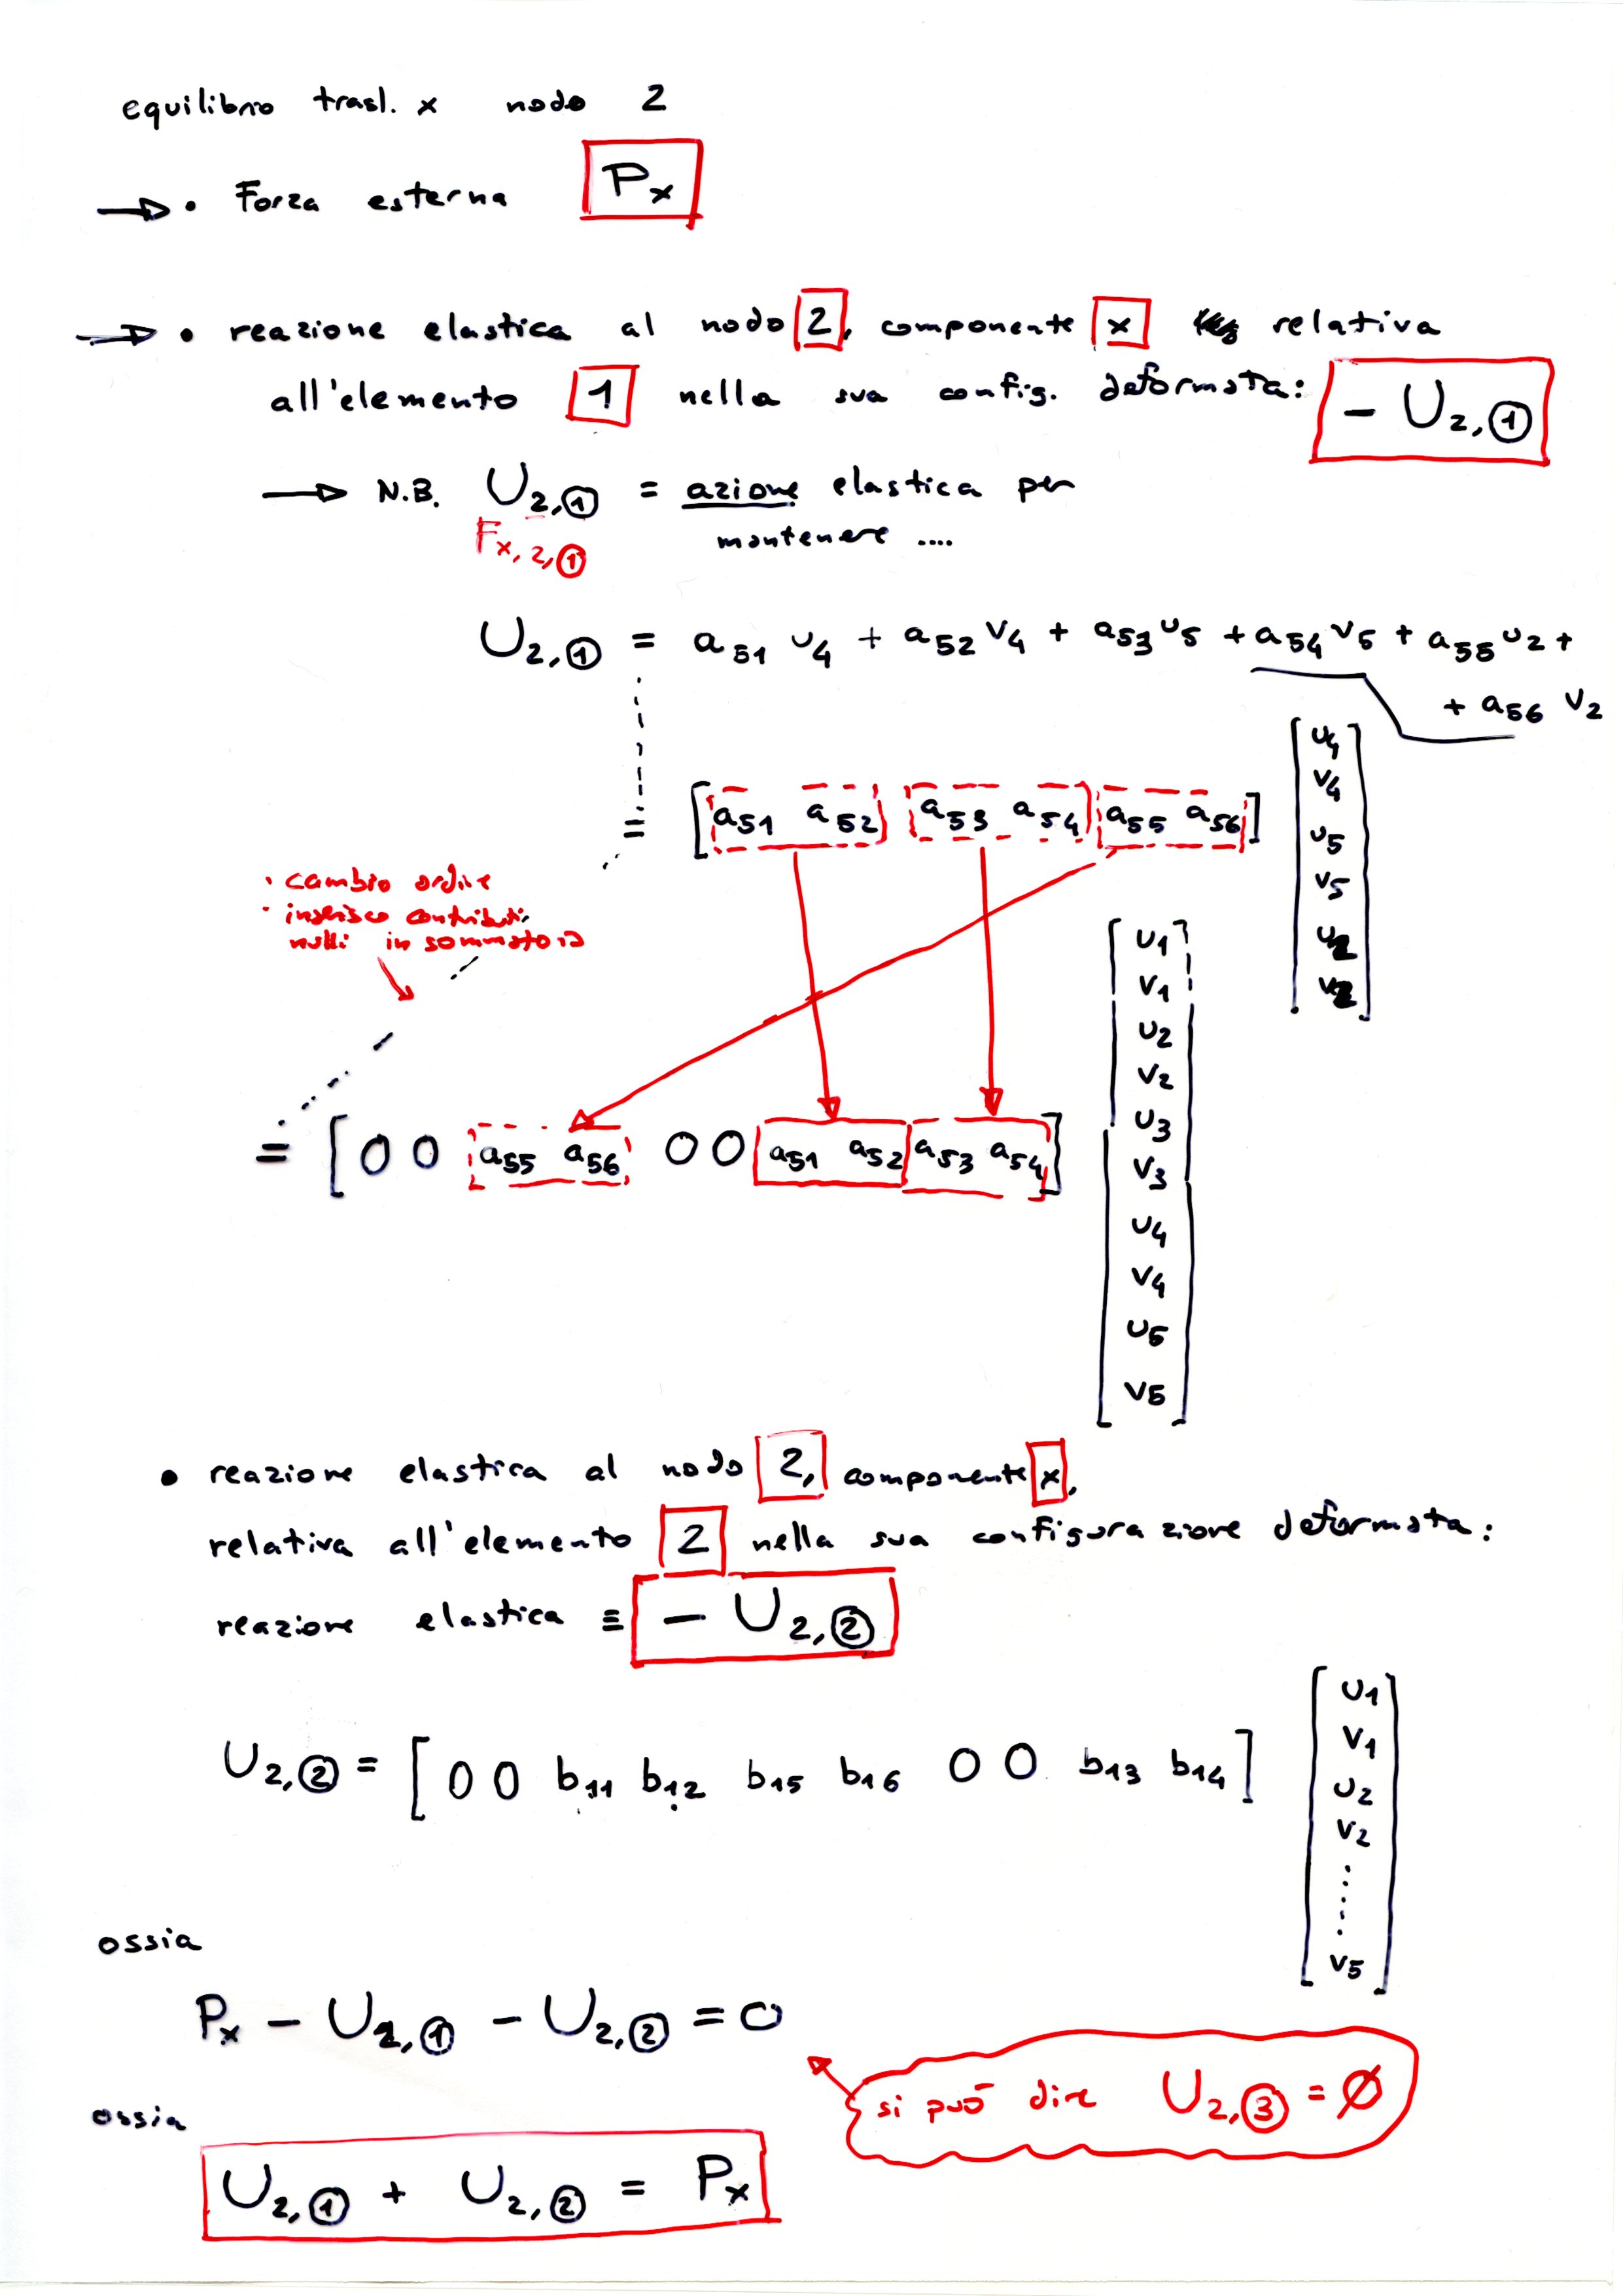 equilibrio trasl. x nodo 2
→ • Forza esterna Px
→ • reazione elastica al nodo 2, componente x relativa
all'elemento 1 nella sua config. deformata: - U2,①
→ N.B. U2,① = azione elastica per
Fx,2,① mantenere ....
U2,① = a51 u4 + a52 v4 + a53 u5 + a54 v5 + a55 u2 +
+ a56 v2
= [a51 a52 a53 a54 a55 a56] [u4 v4 u5 v5 u2 v2]
• cambio ordine
• inserisco contributi
nulli in sommatoria
= [0 0 a55 a56 0 0 a51 a52 a53 a54] [u1 v1 u2 v2 u3 v3 u4 v4 u5 v5]
• reazione elastica al nodo 2, componente x,
relativa all'elemento 2 nella sua configurazione deformata:
reazione elastica ≡ - U2,②
U2,② = [0 0 b11 b12 b15 b16 0 0 b13 b14] [u1 v1 u2 v2 ...... v5]
ossia
Px - U2,① - U2,② = 0
si può dire U2,③ = ∅
ossia
U2,① + U2,② = Px